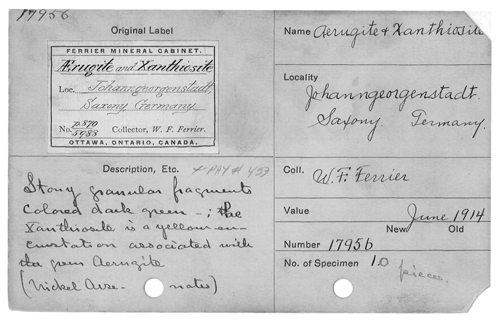 17956
Original Label
FERRIER MINERAL CABINET.
Ærugite and Xanthiosite
Loc. Johanngeorgenstadt,
Saxony Germany
No. 5988 Collector, W. F. Ferrier.
OTTAWA, ONTARIO, CANADA.
Description, Etc. X-RAY # 453
Stony granular fragments
colored dark green -; the
Xanthiosite is a yellow en-
crustation associated with
the green Aerugite
(Nickel Arse- nates)
Name Aerugite & Xanthiosite
Locality
Johanngeorgenstadt.
Saxony. Germany.
Coll. W. F. Ferrier
Value June 1914
New Old
Number 17956
No. of Specimen 10
pieces.